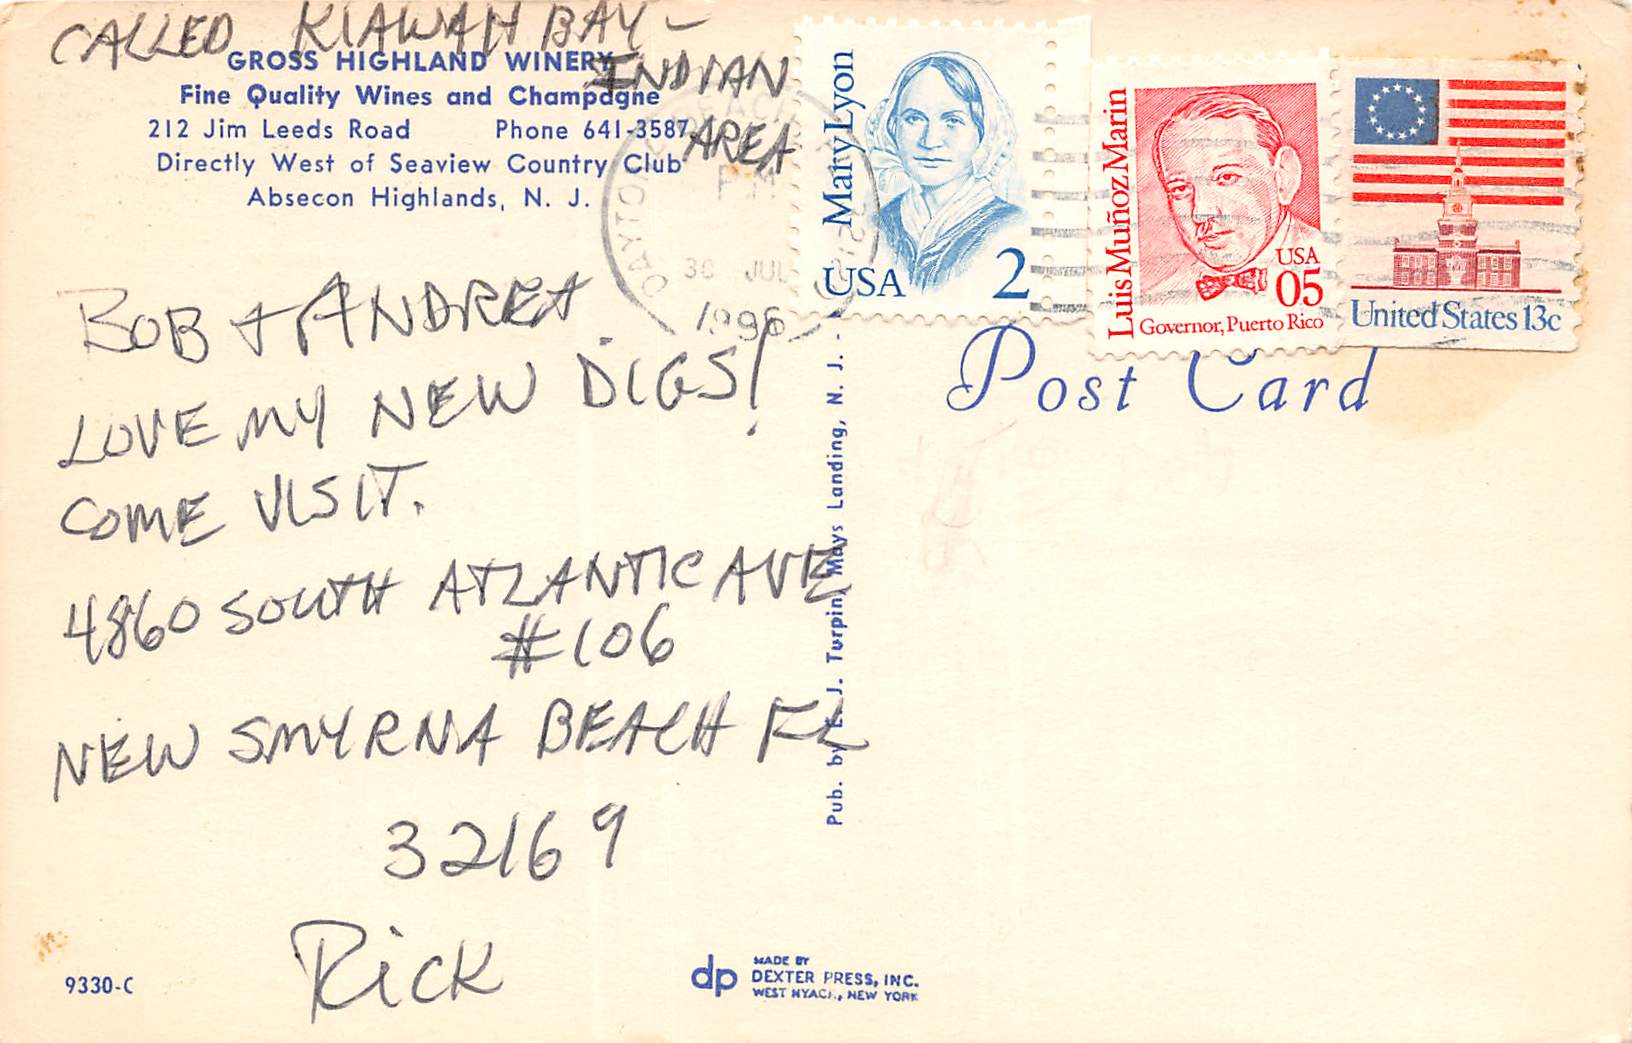 CALLED KIAWAH BAY -
INDIAN
AREA
GROSS HIGHLAND WINERY
Fine Quality Wines and Champagne
212 Jim Leeds Road Phone 641-3587
Directly West of Seaview Country Club
Absecon Highlands, N. J.
BOB + ANDREA
LOVE MY NEW DIGS!
COME VISIT.
4860 SOUTH ATLANTIC AVE
#106
NEW SMYRNA BEACH FL
32169
Rick
9330-C
DAYTONA BEACH
PM
30 JUL
1996
Pub. by E. J. Turpin, Mays Landing, N. J.
dp
MADE BY
DEXTER PRESS, INC.
WEST NYACK, NEW YORK
Mary Lyon
USA 2
Luis Muñoz Marin
USA
05
Governor, Puerto Rico
United States 13c
Post Card